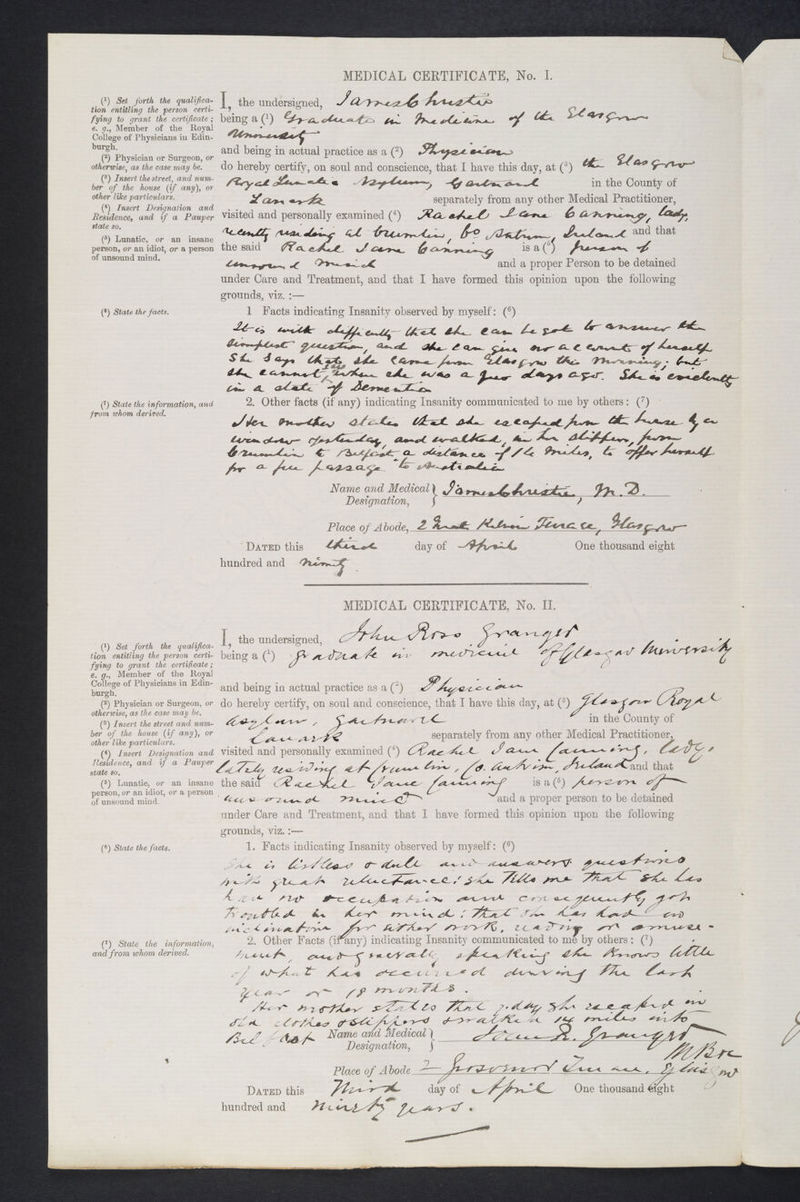 MEDICAL CERTIFICATE, No. I.
(¹) Set forth the qualifica-
tion entitling the person certi-
fying to grant the certificate;
e. g., Member of the Royal
College of Physicians in Edin-
burgh.
(²) Physician or Surgeon, or
otherwise, as the case may be.
(³) Insert the street, and num-
ber of the house (if any), or
other like particulars.
(⁴) Insert Designation and
Residence, and if a Pauper
state so.
(⁵) Lunatic, or an insane
person, or an idiot, or a person
of unsound mind.
I, the undersigned, James Christie
being a (¹) Graduate in Medicine of the Glasgow
University
and being in actual practice as a (²) Physician
do hereby certify, on soul and conscience, that I have this day, at (³) the Glasgow
Royal Lunatic Asylum, Gartnavel in the County of
Lanark separately from any other Medical Practitioner,
visited and personally examined (⁴) Rachel Jane Canning, lady,
recently residing at Crumlin, Co Antrim, Ireland and that
the said Rachel Jane Canning is a (⁵) person of
unsound mind and a proper Person to be detained
under Care and Treatment, and that I have formed this opinion upon the following
grounds, viz. :—
(⁶) State the facts.
1 Facts indicating Insanity observed by myself: (⁶)
It is with difficulty that she can be got to answer the
simplest question, and she can give no account of herself
She says that she came from Glasgow this morning; but
she cannot say where she was a few days ago. She is evidently
in a state of Dementia
(⁷) State the information, and
from whom derived.
2. Other facts (if any) indicating Insanity communicated to me by others: (⁷)
Her mother states that she escaped from the house by a
window yesterday, and walked, in her slippers, from
Crumlin to Belfast, a distance of 16 miles, to offer herself
for a free passage to Australia
Name and Medical Designation, James Christie, M.D.
Place of Abode, 2 Kelvin Terrace, Glasgow
DATED this third day of April One thousand eight
hundred and ninety.
MEDICAL CERTIFICATE, No. II.
(¹) Set forth the qualifica-
tion entitling the person certi-
fying to grant the certificate;
e. g., Member of the Royal
College of Physicians in Edin-
burgh.
(²) Physician or Surgeon, or
otherwise, as the case may be.
(³) Insert the street and num-
ber of the house (if any), or
other like particulars.
(⁴) Insert Designation and
Residence, and if a Pauper
state so.
(⁵) Lunatic, or an insane
person, or an idiot, or a person
of unsound mind.
I, the undersigned, John Ross Granger
being a (¹) Graduate in medicine of Glasgow University
and being in actual practice as a (²) Physician
do hereby certify, on soul and conscience, that I have this day, at (³) Glasgow Royal
Asylum, Gartnavel in the County of
Lanark separately from any other Medical Practitioner,
visited and personally examined (⁴) Rachel Jane Canning, lady,
lately residing at Crumlin, Co. Antrim, Ireland and that
the said Rachel Jane Canning is a (⁵) person of
unsound mind and a proper person to be detained
under Care and Treatment, and that I have formed this opinion upon the following
grounds, viz. :—
(⁶) State the facts.
1. Facts indicating Insanity observed by myself: (⁶)
She is listless & dull and answers questions
with great reluctance: she tells me that she has
had no occupation and consequently got
troubled in her mind: that she has had no
inclination for either work, reading or amuse-
(⁷) State the information,
and from whom derived.
2. Other Facts (if any) indicating Insanity communicated to me by others: (⁷)
ment, and generally speaking she knows little
of what has occurred during the last
year or 18 months.
Her mother states that she escaped in
old clothes & slippers & walked miles into
Belfast
Name and Medical Designation, John R. Granger
Place of Abode 2 Grosvenor Terrace, Glasgow
DATED this Third day of April One thousand eight
hundred and Ninety years.